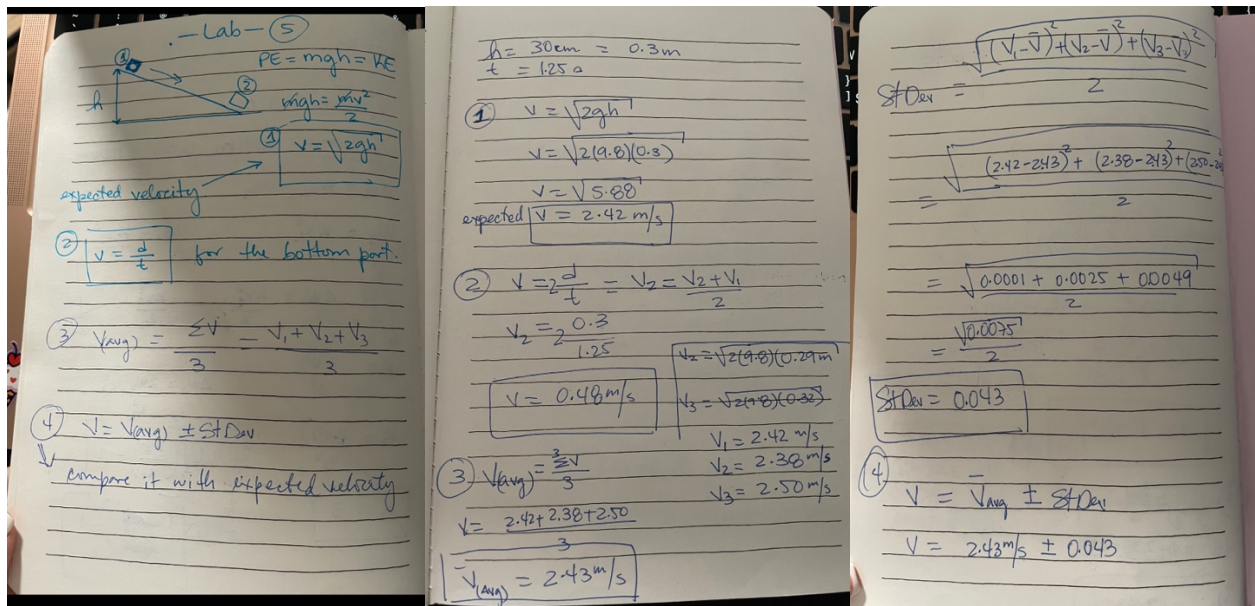 .-Lab- ⑤
① PE = mgh = KE
h ②
mgh = mv²/2
① v = √2gh
expected velocity
② v = d/t for the bottom part.
③ V(avg) = ΣV/3 = V₁ + V₂ + V₃/3
④ V = V(avg) ± StDev
compare it with expected velocity
h = 30cm = 0.3m
t = 1.25 s
① v = √2gh
v = √2(9.8)(0.3)
v = √5.88
expected v = 2.42 m/s
② V = 2 d/t = V₂ = V₂ + V₁/2
V₂ = 2 0.3/1.25
V₂ = √2(9.8)(0.29m
V = 0.48 m/s
V₃ = √2(9.8)(0.32)
V₁ = 2.42 m/s
V₂ = 2.38 m/s
V₃ = 2.50 m/s
③ V(avg) = ³ΣV/3
V = 2.42 + 2.38 + 2.50/3
V̄(Avg) = 2.43 m/s
StDev = √(V₁-V̄)² + (V₂-V̄)² + (V₃-V̄)²/2
= √(2.42-2.43)² + (2.38-2.43)² + (2.50-2.4/2
= √0.0001 + 0.0025 + 0.0049/2
= √0.0075/2
StDev = 0.043
④ V = V̄avg ± StDev
V = 2.43 m/s ± 0.043